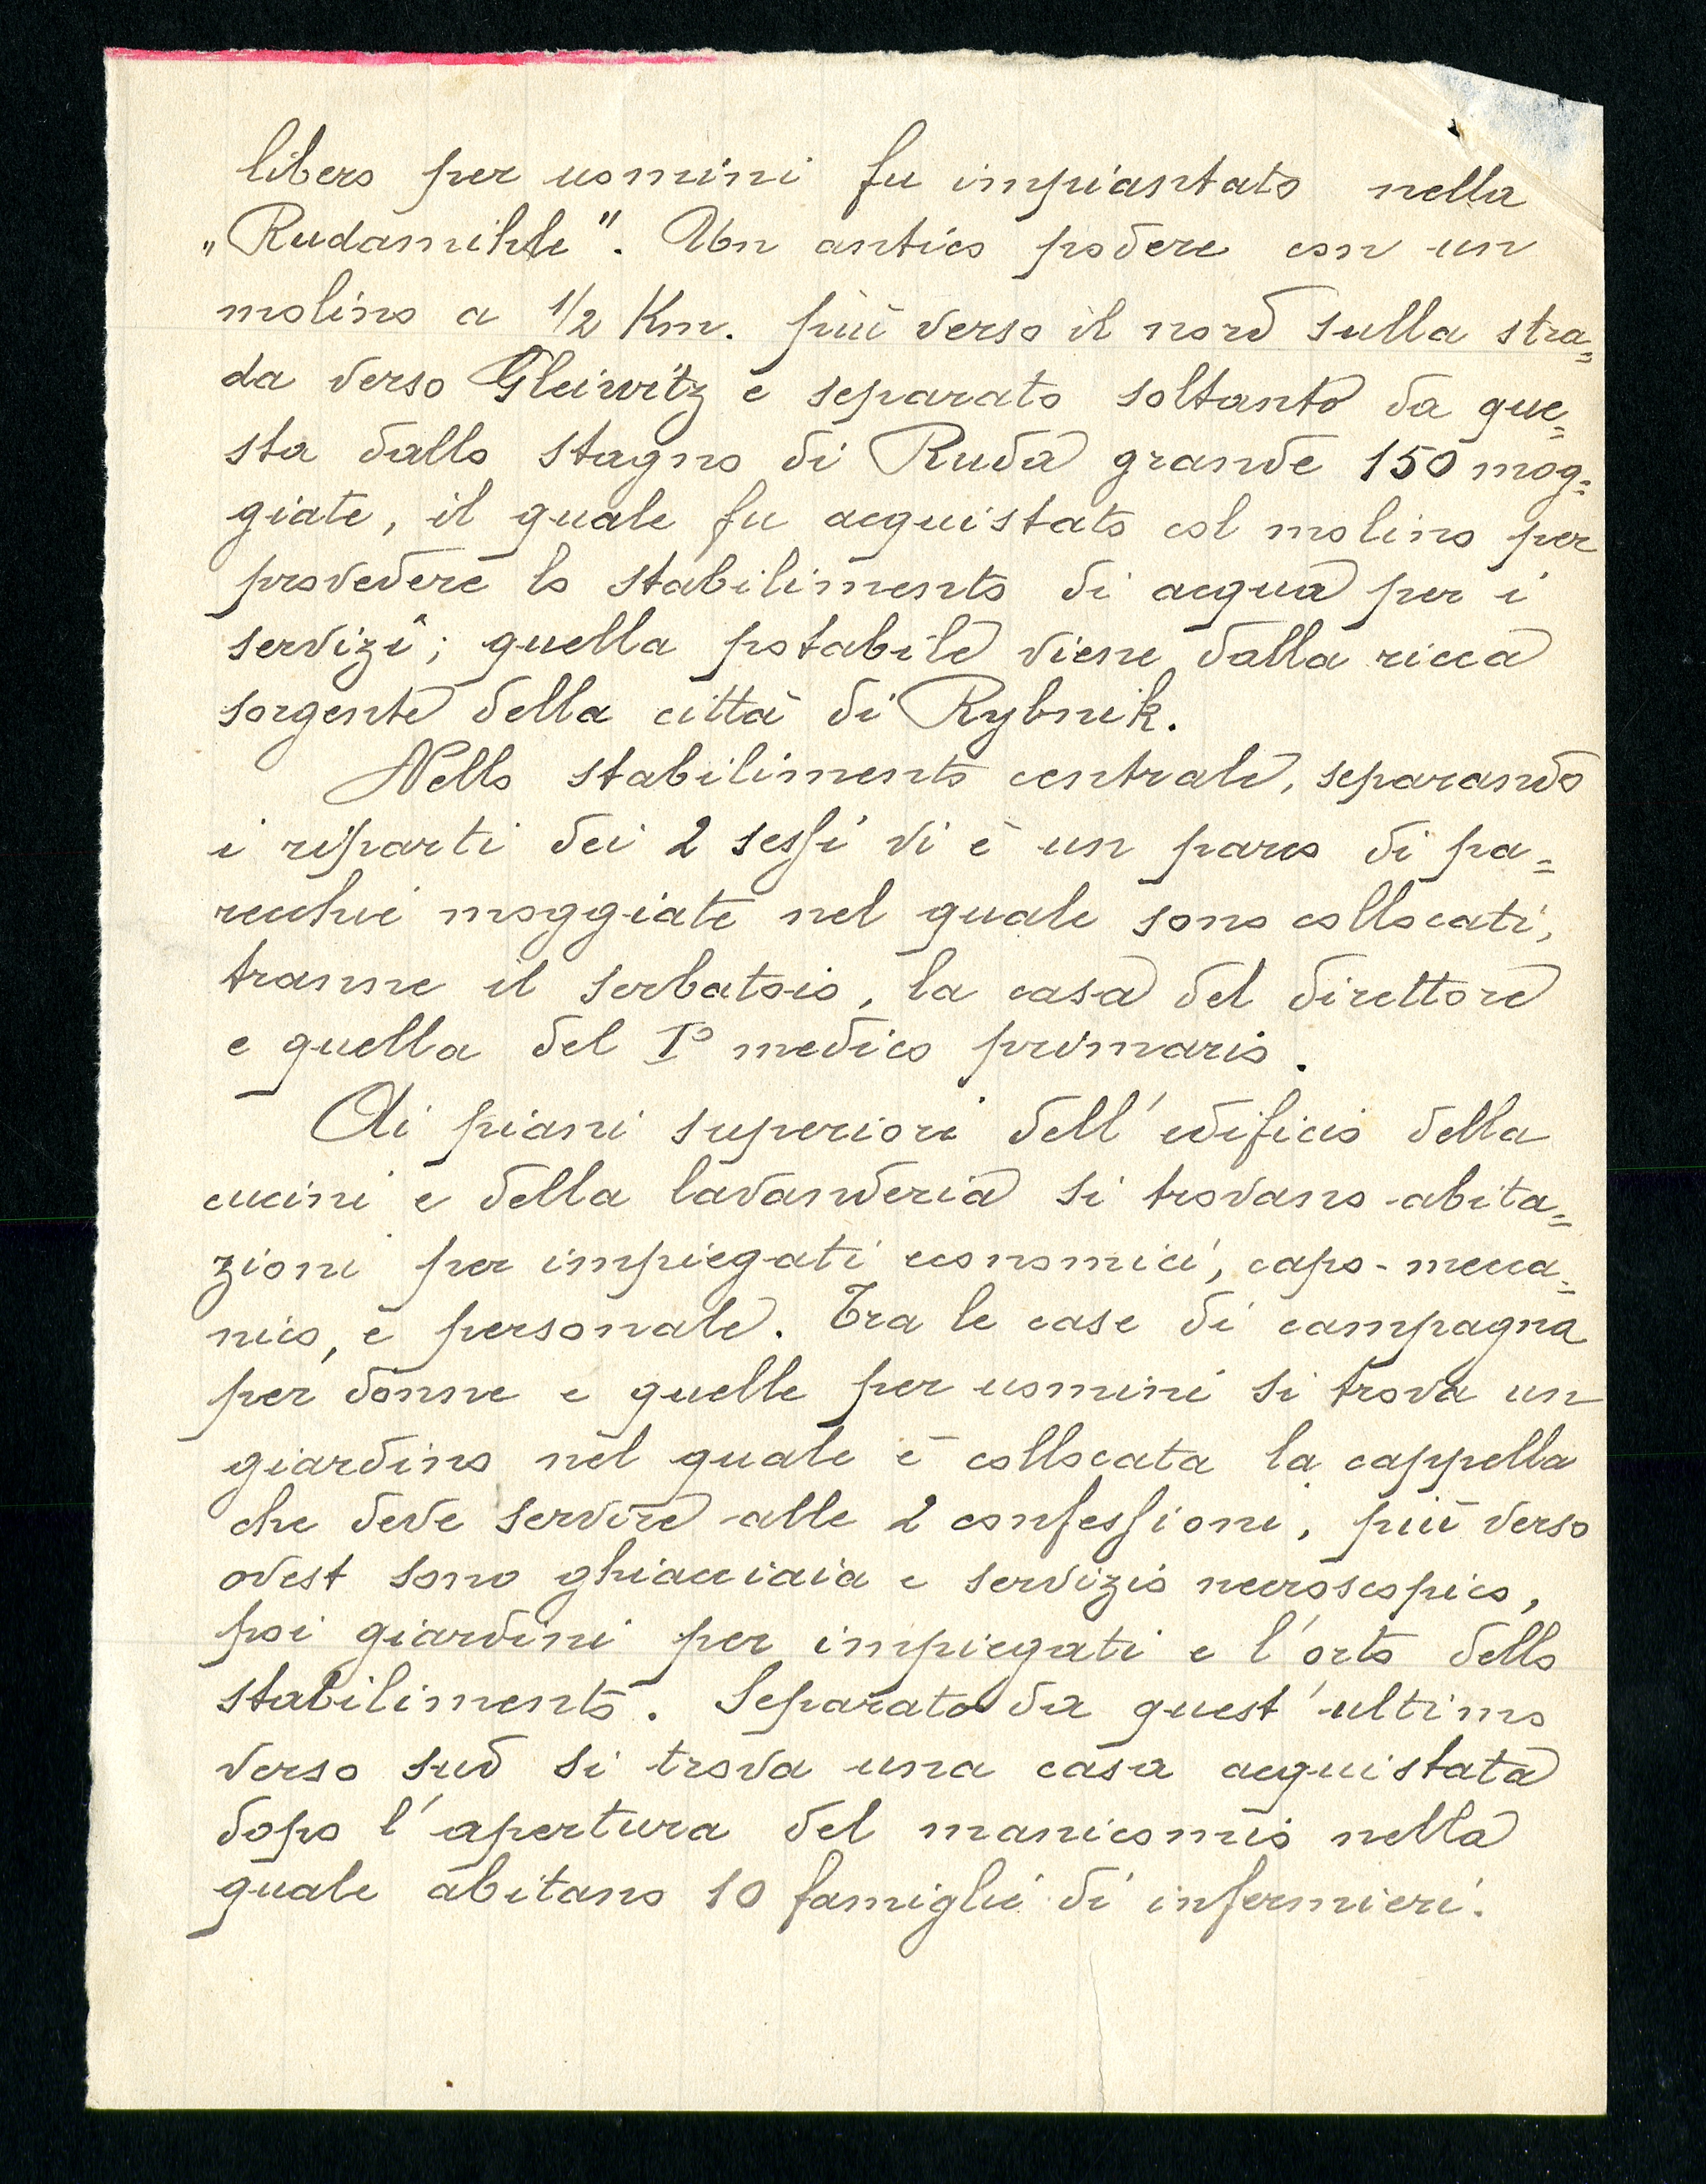 libero per uomini fu impiantato nella
„Rudamihle". Un antico podere con un
molino a 1/2 Km. più verso il nord sulla stra=
da verso Gleiwitz e separato soltanto da que=
sta dallo stagno di Ruda grande 150 mog=
giate, il quale fu acquistato col molino per
provedere lo stabilimento di acqua per i
servizi; quella potabile viene dalla ricca
sorgente della città di Rybnik.
Nello stabilimento centrale, separando
i riparti dei 2 sessi vi è un parco di pa=
recchie moggiate nel quale sono collocati,
tranne il serbatoio, la casa del direttore
e quella del I° medico primario.
Ai piani superiori dell'edificio della
cucini e della lavanderia si trovano abita=
zioni per impiegati economici, capo-mecca=
nico, e personale. Tra le case di campagna
per donne e quelle per uomini si trova un
giardino nel quale è collocata la cappella
che deve servire alle 2 confessioni, più verso
ovest sono ghiacciaia e servizio necroscopico,
poi giardini per impiegati e l'orto dello
stabilimento. Separato da quest'ultimo
verso sud si trova una casa acquistata
dopo l'apertura del manicomio nella
quale abitano 10 famiglie di infermieri.